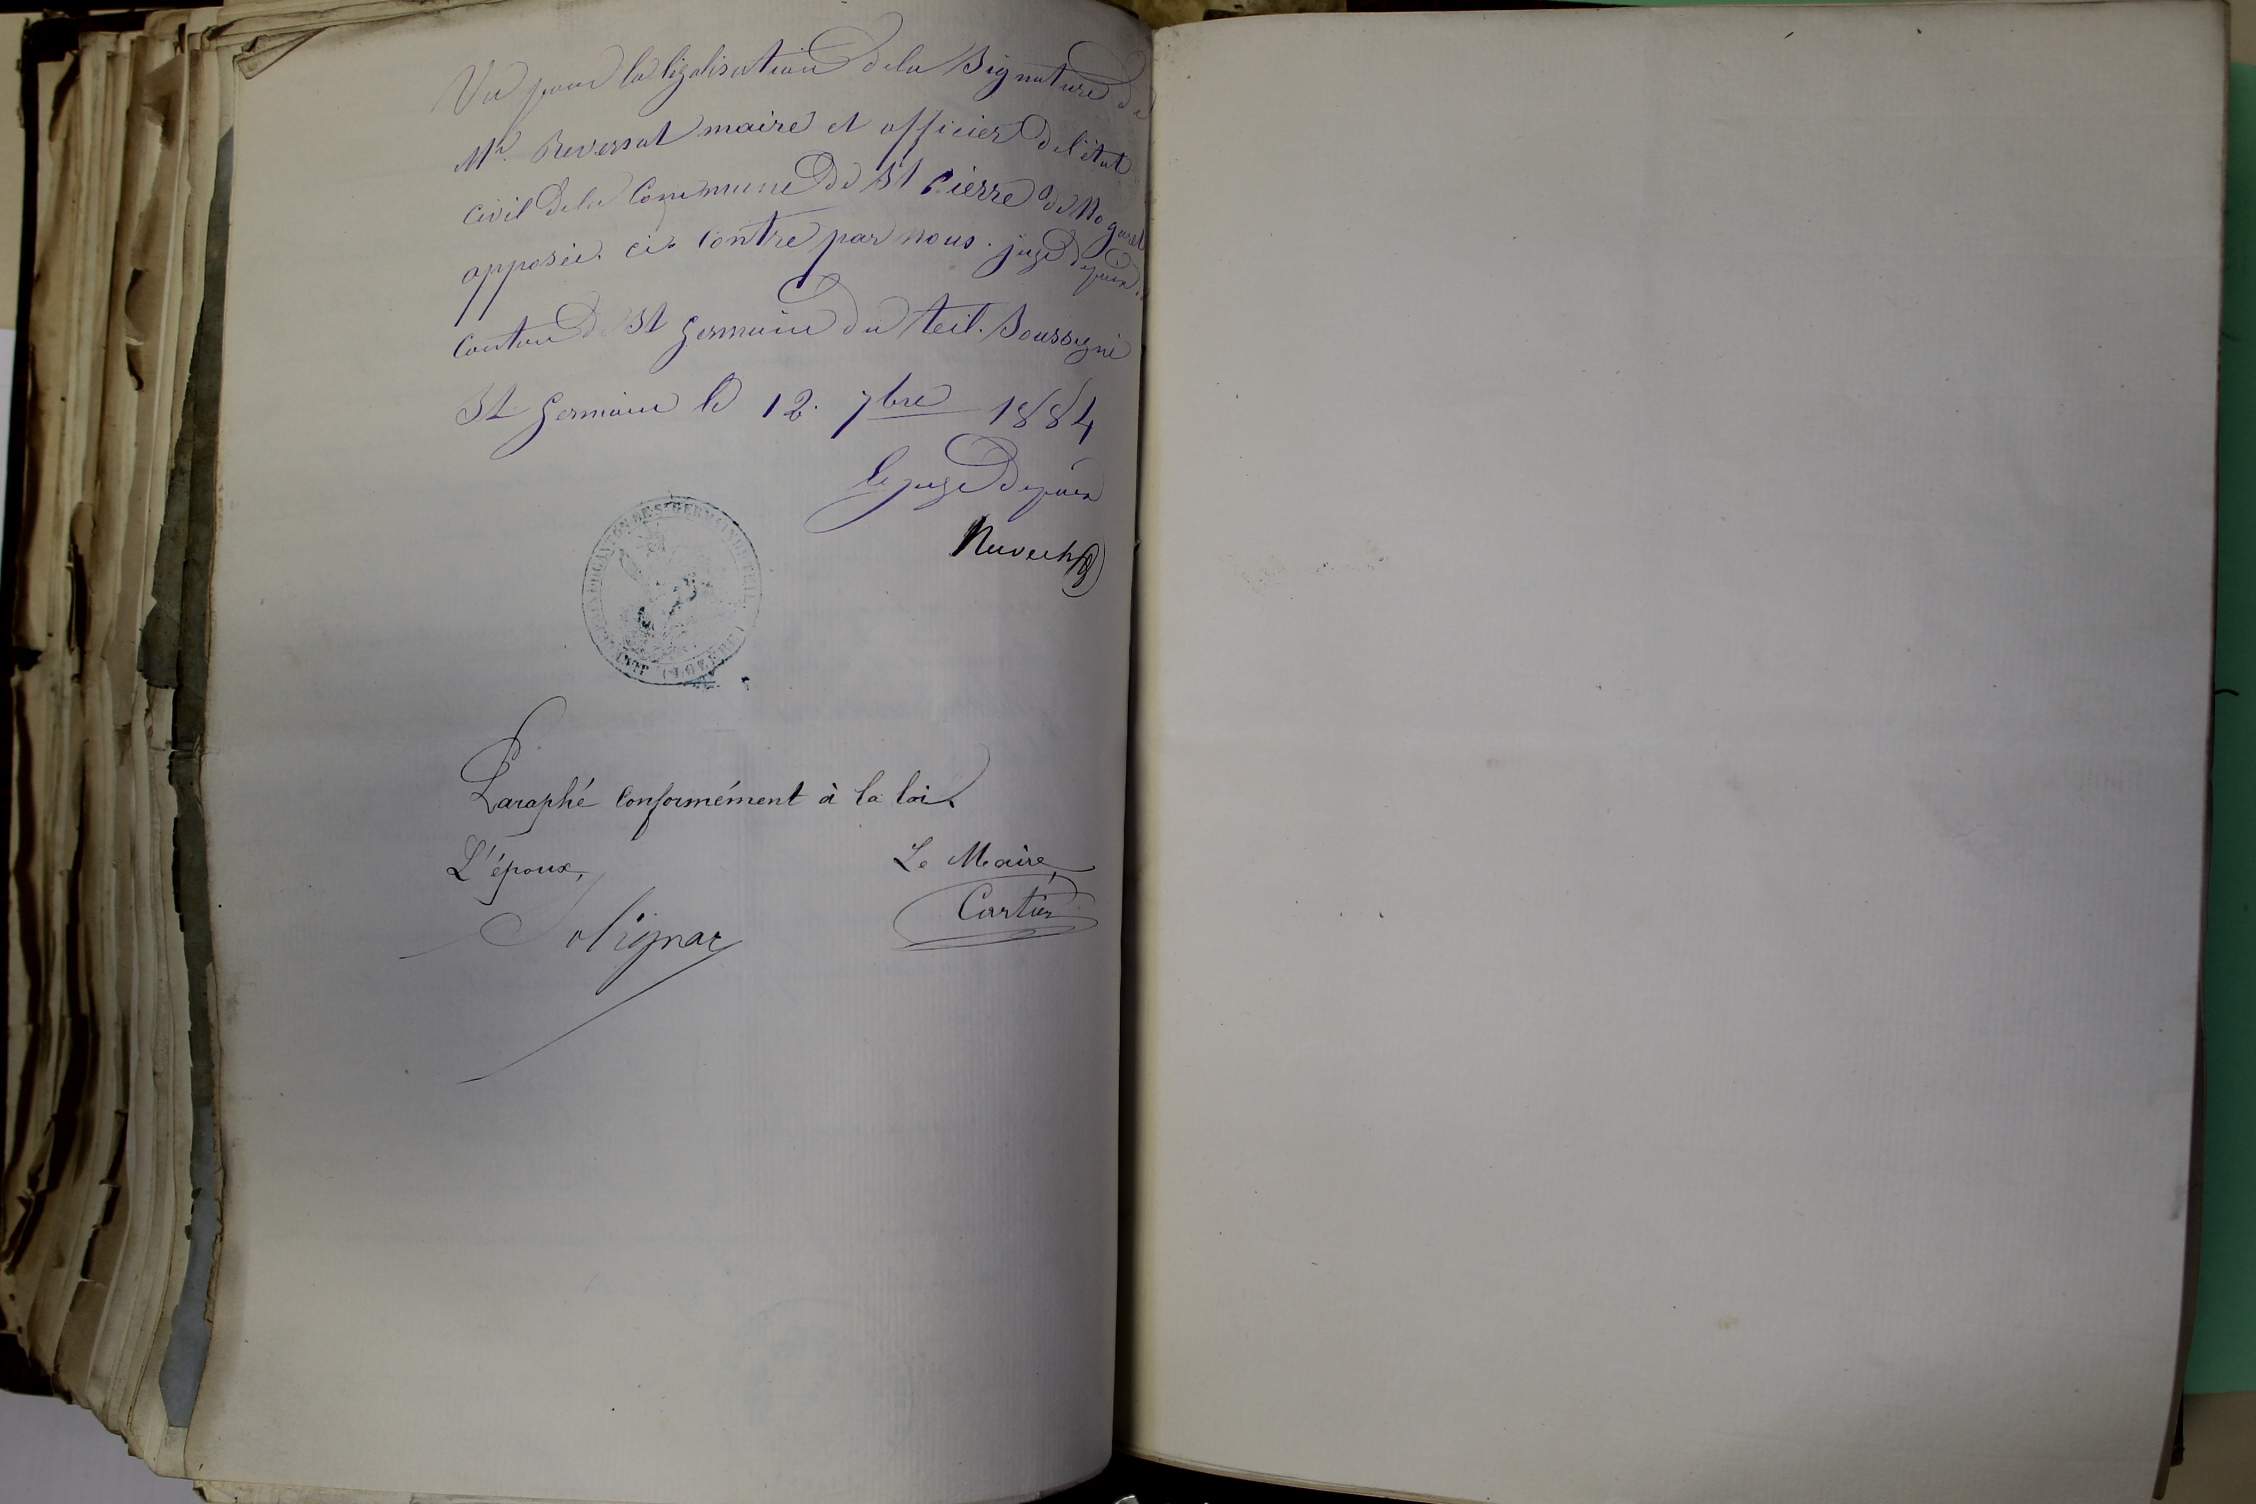 Vu pour la légalisation de la Signature de
Mr. Reversat maire et officier de l'état
civil de la Commune de St Pierre de Nogaret
apposée ci-contre par nous juge de paix du
Canton de St Germain du Teil. Soussigné
St Germain le 12. 7bre 1884
Le juge de paix
CANTON DE ST GERMAIN DU TEIL
(LOZÈRE)
Paraphé conformément à la loi.
L'époux, Le Maire,
Solignac Cartier